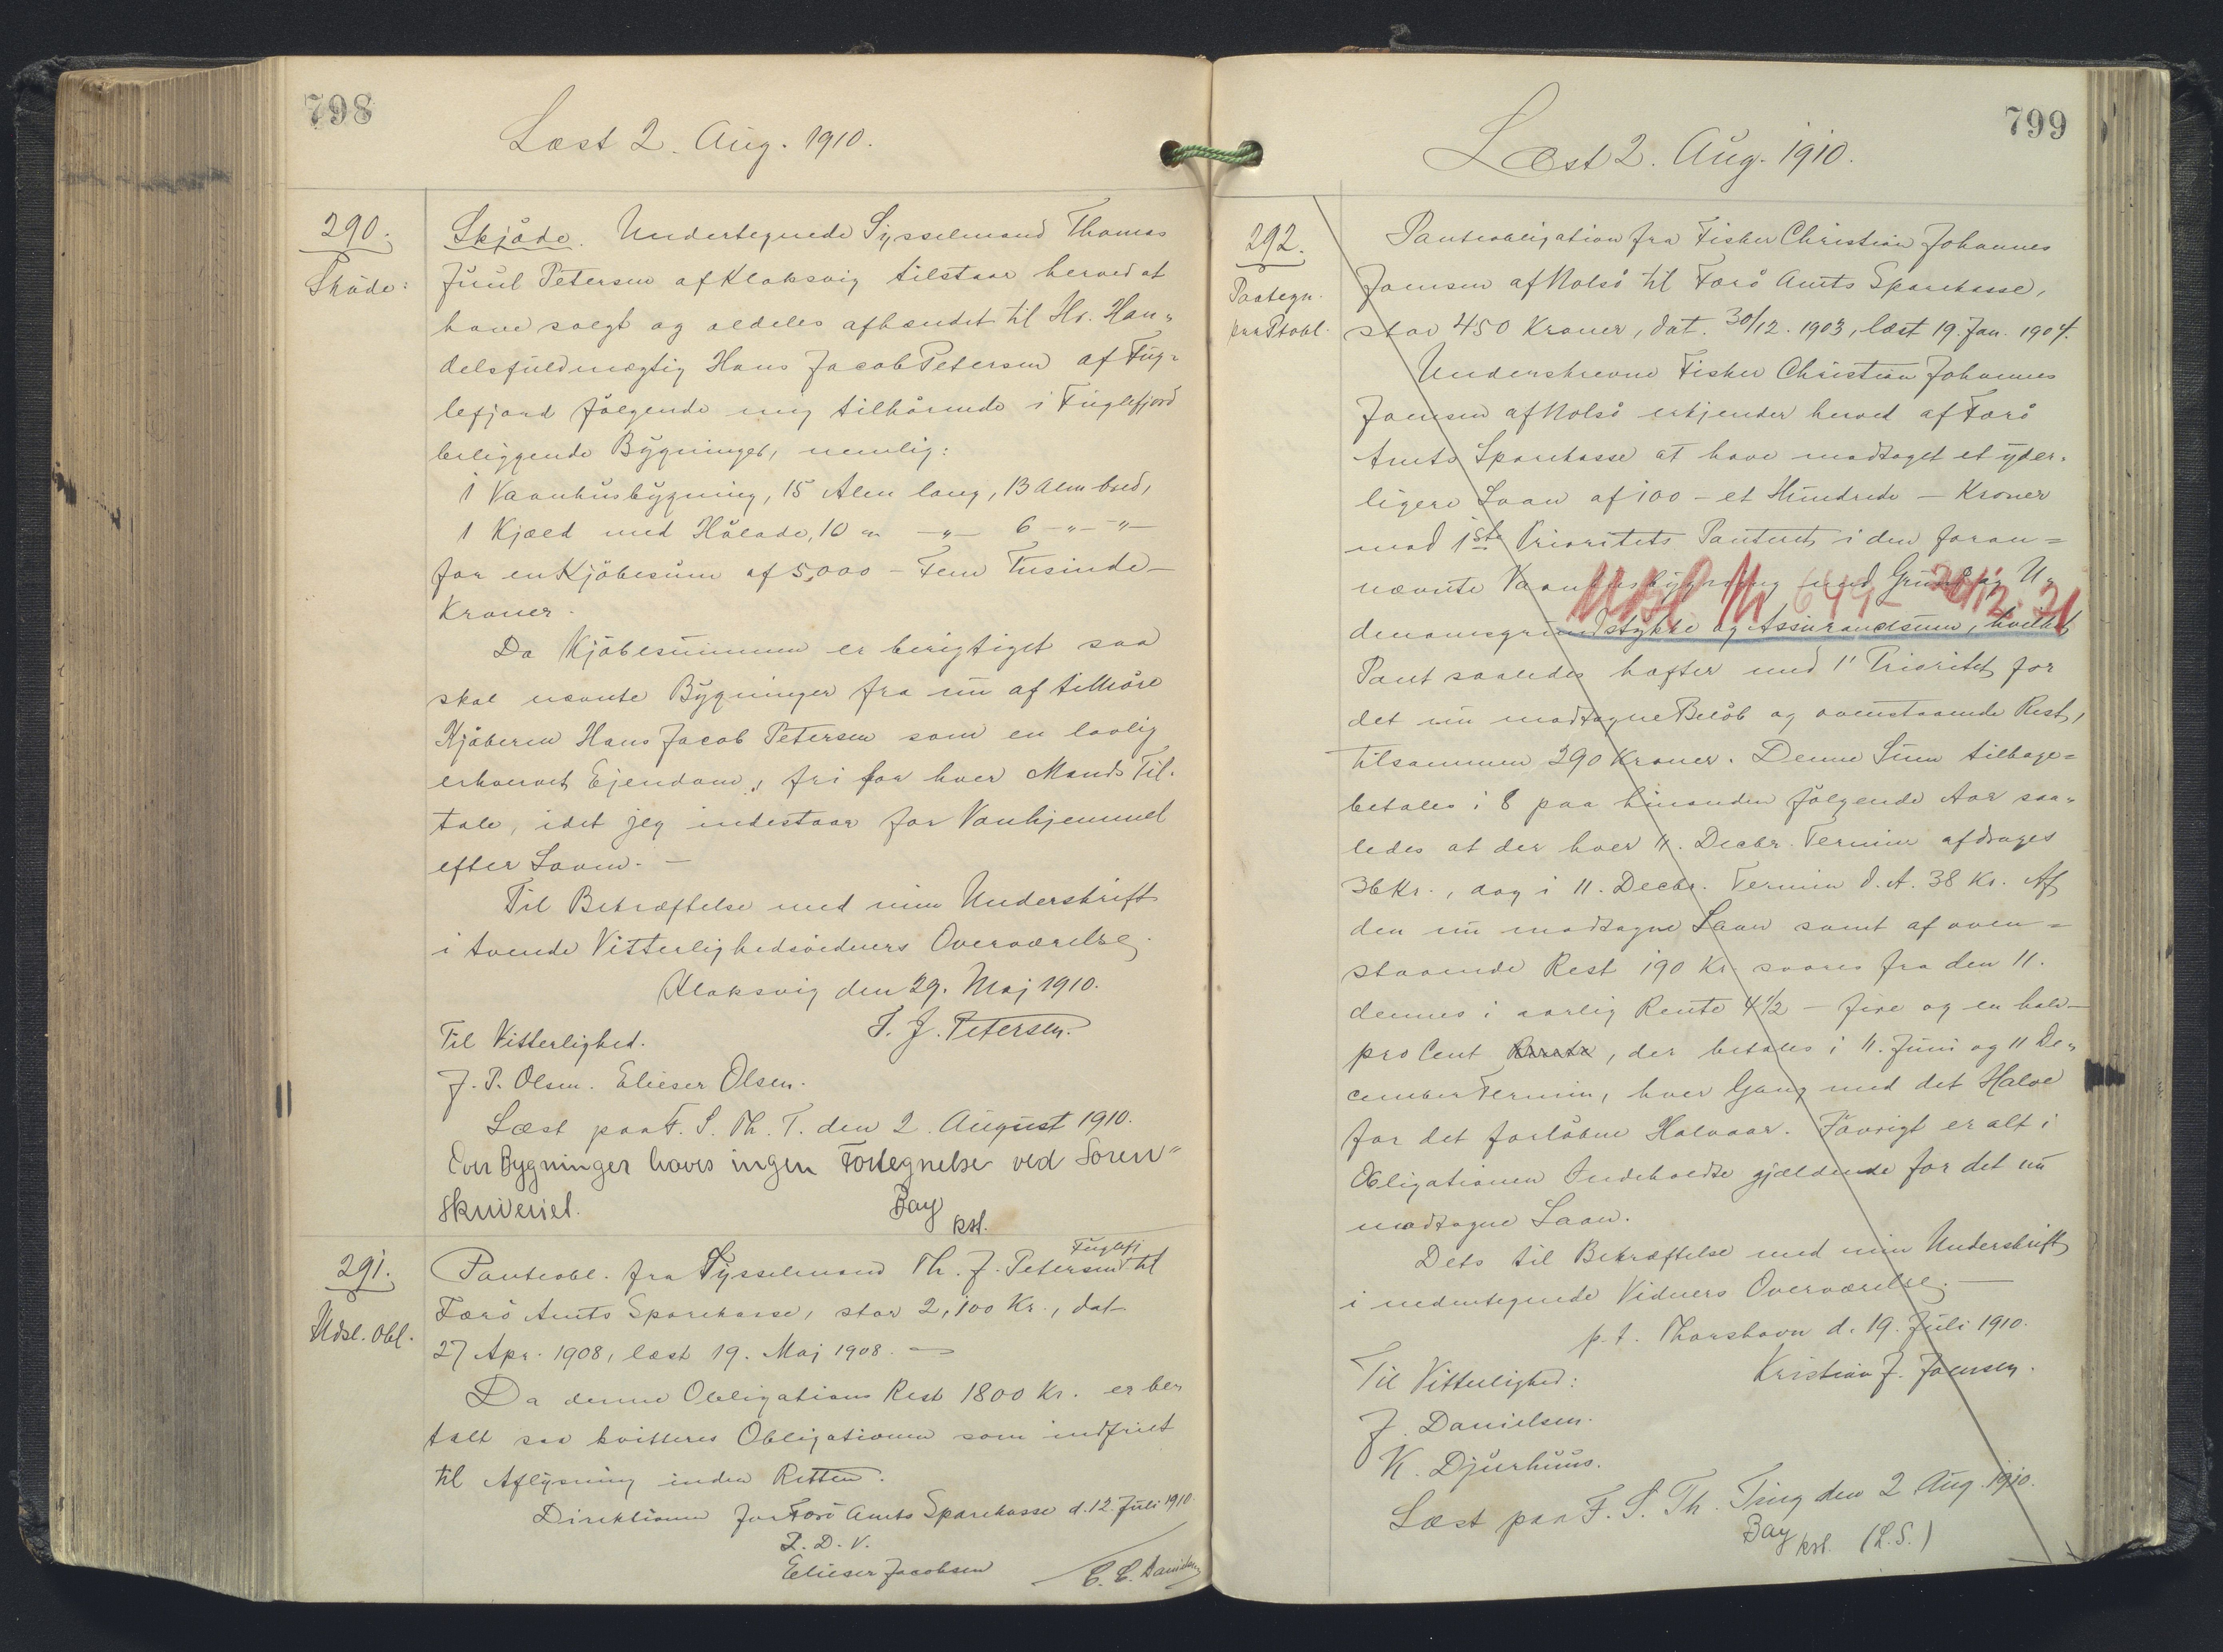 798
Læst 2. Aug. 1910.
290.
Skøde:
Skjøde. Undertegnede Sysselmand Thomas
Juul Petersen af Klaksvig tilstaar herved at
have solgt og aldeles afhændet til Hr. Han-
delsfuldmægtig Hans Jacob Petersen af Fug-
lefjord følgende mig tilhørende i Fuglefjord
beliggende Bygninger, nemlig:
1 Vaanhusbygning, 15 Alen lang, 13 Alen bred,
1 Kjæld med Hølade, 10 " -"- 6 -"- -"-
for en Kjøbesum af 5,000 - Fem Tusinde -
Kroner.
Da Kjøbesummen er berigtiget saa
skal nævnte Bygninger fra nu af tilhøre
Kjøberen Hans Jacob Petersen som en lovlig
erhvervet Ejendom, fri for hver Mands Til-
tale, idet jeg indestaar for Vanhjemmel
efter Loven. -
Til Bekræftelse med min Underskrift
i tvende Vitterlighedsvidners Overværelse.
Klaksvig den 29. Maj 1910.
T. J. Petersen.
Til Vitterlighed.
J. P. Olsen. Elieser Olsen.
Læst paa F. S. Th. T. den 2. August 1910.
Over Bygninger haves ingen Fortegnelse ved Soren"
skriveriet.
Bay
kst.
291.
Udsl. Obl.
Panteobl. fra Sysselmand Th. J. Petersen Fuglefj til
Færø Amts Sparekasse, stor 2,100 Kr., dat
27 Apr. 1908, læst 19. Maj 1908. -
Da denne Obligations Rest 1800 Kr. er be-
talt saa kvitteres Obligationen som indfriet
til Aflysning inden Retten.
Direktionen for Færø Amts Sparekasse d. 12. Juli 1910
P. D. V.
Elieser Jacobsen C. C. Danielsen
799
Læst 2. Aug. 1910.
292.
Paategn.
paa Ptobl.
Panteobligation fra Fisker Christian Johannes
Joensen af Nolsø til Færø Amts Sparekasse,
stor 450 Kroner, dat. 30/12. 1903, læst 19. Jan. 1904.
Underskrevne Fisker Christian Johannes
Joensen af Nolsø erkjender herved af Færø
Amts Sparekasse at have modtaget et yder-
ligere Laan af 100 - et Hundrede - Kroner
mod 1ste Prioritets Panteret i den foran=
nævnte Vaanhusbygning med Grund og U-
denomsgrundstykke og Assurancesum, hvilket
Pant saaledes hæfter med 1' Prioritet for
det nu modtagne Beløb og ovenstaaende Rest,
tilsammen 290 Kroner. Denne Sum tilbage=
betales i 8 paa hinanden følgende Aar saa-
ledes at der hver 11. Decbr. Termin afdrages
36 Kr., dog i 11. Decbr. Termin d. A. 38 Kr. Af
den nu modtagne Laan samt af oven=
staaende Rest 190 Kr svares fra den 11.
dennes i aarlig Rente 4 1/2 - fire og en halv -
pro Cent Rente, der betales i 11. Juni og 11 De-
cember Termin, hver Gang med det Halve
for det forløbne Halvaar. Iøvrigt er alt i
Obligationen Indeholdte gjældende for det nu
modtagne Laan.
Dets til Bekræftelse med min Underskrift
i nedentegnede Vidners Overværelse. -
p. t. Thorshavn d. 19. Juli 1910.
Kristian J. Joensen.
Til Vitterlighed:
J. Danielsen.
K. Djurhuus.
Læst paa F. S. Th. Ting den 2 Aug. 1910.
Bay
kst. (L.S.)